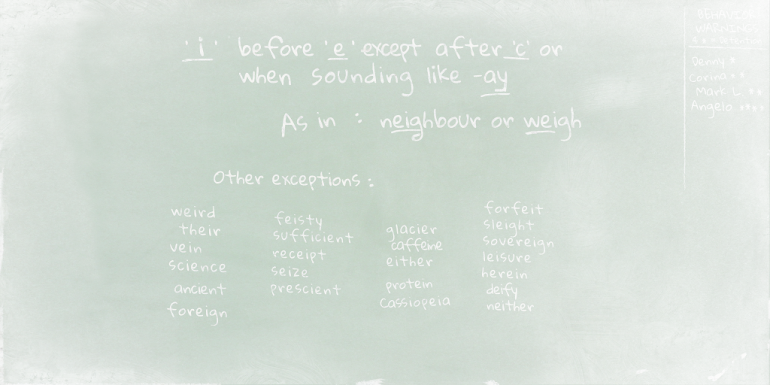 'i' before 'e' except after 'c' or
when sounding like -ay
As in : neighbour or weigh
Other exceptions :
weird
their
vein
science
ancient
foreign
feisty
sufficient
receipt
seize
prescient
glacier
caffeine
either
protein
Cassiopeia
forfeit
sleight
sovereign
leisure
herein
deify
neither
WARNINGS
Denny *
Corina **
Mark L **
Angelo ****